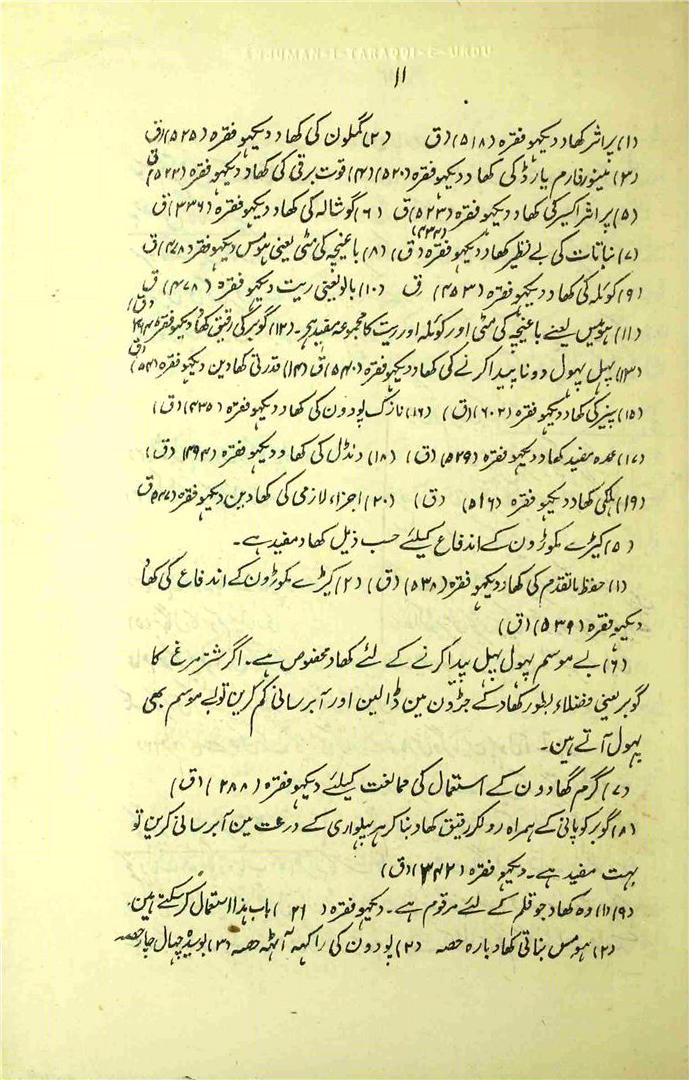 ANJUMAN-I-TARAQQI-E-URDU
۱۱
(۱) پراثر کھاد دیکھو فقرہ (۵۱۸) (ق (۲) گملون کی کھاد دیکھو فقرہ (۵۲۵) (ق
(۳) مینور فارم یارڈ کی کھاد دیکھو فقرہ (۵۲۰) (۴) قوت برقی کی کھاد دیکھو فقرہ (۵۲۲) ق
(۵) پراثر اکسیر کی کھاد دیکھو فقرہ (۵۲۳) ق (۶) گوشالہ کی کھاد دیکھو فقرہ (۳۳۶) ق
(۷) نباتات کی بے نظیر کھاد دیکھو فقرہ (۴۳۲) (ق) (۸) باغیچہ کی مٹی یعنی ہومس دیکھو فقرہ (۴۷۸) ق
(۹) کوئلہ کی کھاد دیکھو فقرہ (۴۵۳) (ق (۱۰) بالو یعنی ریت دیکھو فقرہ (۴۷۸) ق
(۱۱) ہومس یعنے باغیچہ کی مٹی اور کوئلہ اور ریت کا مجموعہ مفید ہے۔ (۱۲) گوبر کی رقیق کھاد دیکھو فقرہ (ق)
(۱۳) پہل پہول دونا پیدا کرنے کی کھاد دیکھو فقرہ (۵۴۰) ق (۱۴) قدرتی کھادین دیکھو فقرہ (۵۴۱) ق
(۱۵) پنیر کی کھاد دیکھو فقرہ (۶۰۲) (ق) (۱۶) نازک پودون کی کھاد دیکھو فقرہ (۴۳۵) (ق)
(۱۷) عمدہ مفید کھاد دیکھو فقرہ (۵۲۹) (ق) (۱۸) ڈنڈل کی کھاد دیکھو فقرہ (۴۹۴) (ق)
(۱۹) ہلکی کھاد دیکھو فقرہ (۵۱۶) (ق) (۲۰) اجزاء لازمی کی کھادین دیکھو فقرہ (۵۴۷) ق
(۵) کیڑے مکوڑون کے اندفاع کیلئے حسب ذیل کھاد مفید ہے۔
(۱) حفظ ماتقدم کی کھاد دیکھو فقرہ (۵۳۸) (ق) (۲) کیڑے مکوڑون کے اندفاع کی کھاد
دیکھو فقرہ (۵۳۹) (ق)
(۶) بے موسم پہول پہل پیدا کرنے کے لئے کھاد مخصوص ہے۔ اگر شتر مرغ کا
گوبر یعنی فضلاء بطور کھاد کے جڑون مین ڈالین اور آبرسانی کم کرین تو بے موسم بھی
پہول آتے ہین۔
(۷) گرم کھادون کے استعمال کی ممالغت کیلئے دیکھو فقرہ (۲۸۸) (ق)
(۸) گوبر کو پانی کے ہمراہ رولکر رقیق کھاد بنا کر ہر پہلواری کے درعت مین آبرسانی کرین تو
بہت مفید ہے۔ دیکھو فقرہ (۳۴۲) (ق)
(۹) (۱) وہ کھاد جو قلم کے لئے مرقوم ہے۔ دیکھو فقرہ (۲۱) باب ہذا استعمال کر سکتے ہین۔
(۲) ہومس بناتی کھاد بارہ حصہ (۲) پودون کی راکہہ آٹہہ حصہ (۳) بوسیدہ چہال چار حصہ